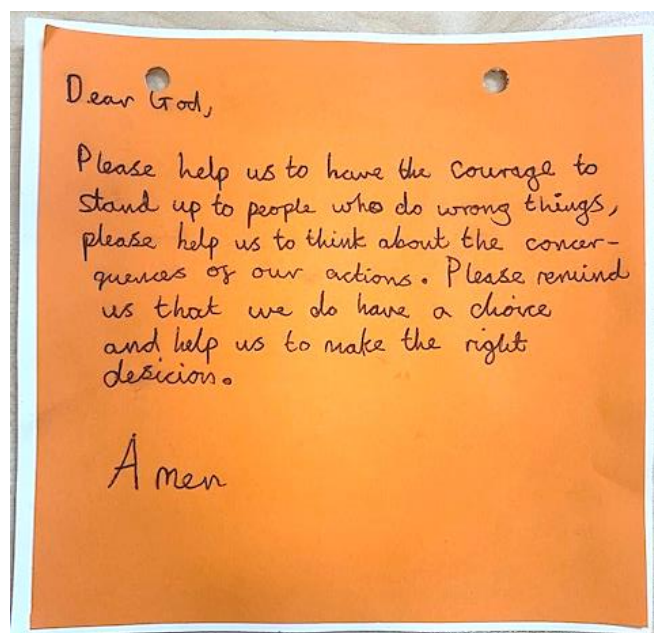 Dear God,
Please help us to have the courage to
stand up to people who do wrong things,
please help us to think about the concer-
quences of our actions. Please remind
us that we do have a choice
and help us to make the right
desicion.
Amen